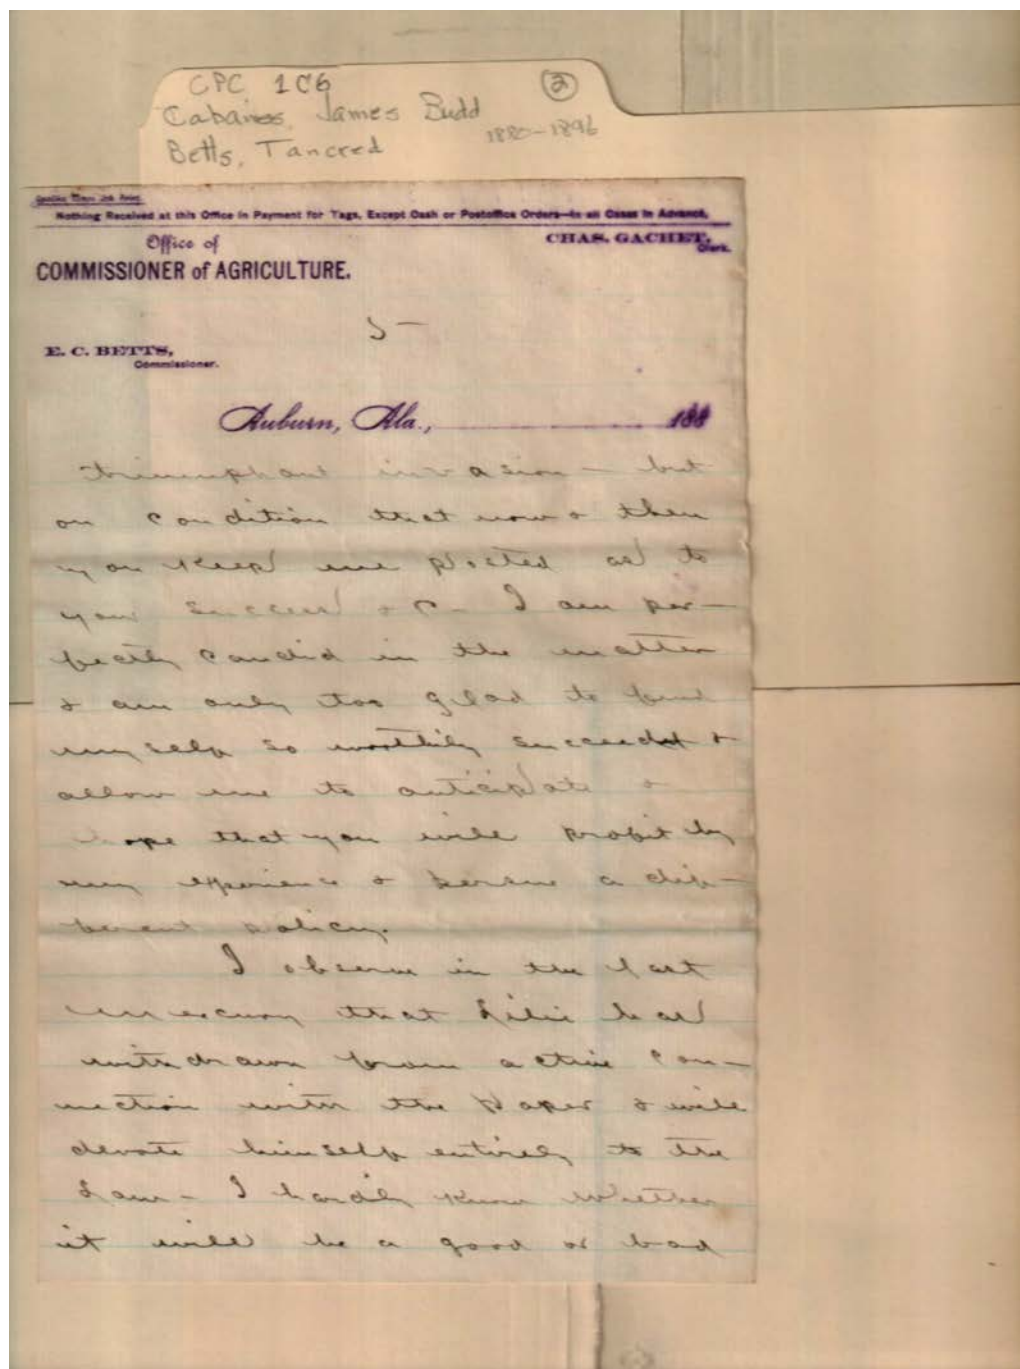 CPC 1C6 2
Cabaniss, James Budd
1880-1896
Betts, Tancred
Opelika Times Job Print.
Nothing Received at this Office in Payment for Tags, Except Cash or Postoffice Orders—in all Cases in Advance.
Office of
CHAS. GACHET,
Clerk.
COMMISSIONER of AGRICULTURE.
5-
E. C. BETTS,
Commissioner.
Auburn, Ala., 188
triumphant invasion - but
on condition that now & then
you keep me posted as to
your success & C - I am per-
fectly candid in the matter
& am only too glad to find
myself so worthily succeeded &
allow me to anticipate &
hope that you will profit by
my experience & pursue a dif-
ferent policy.
I observe in the last
Mercury that has
withdrawn from active con-
nection with the paper & will
devote himself entirely to the
Law - I hardly know whether
it will be a good or bad